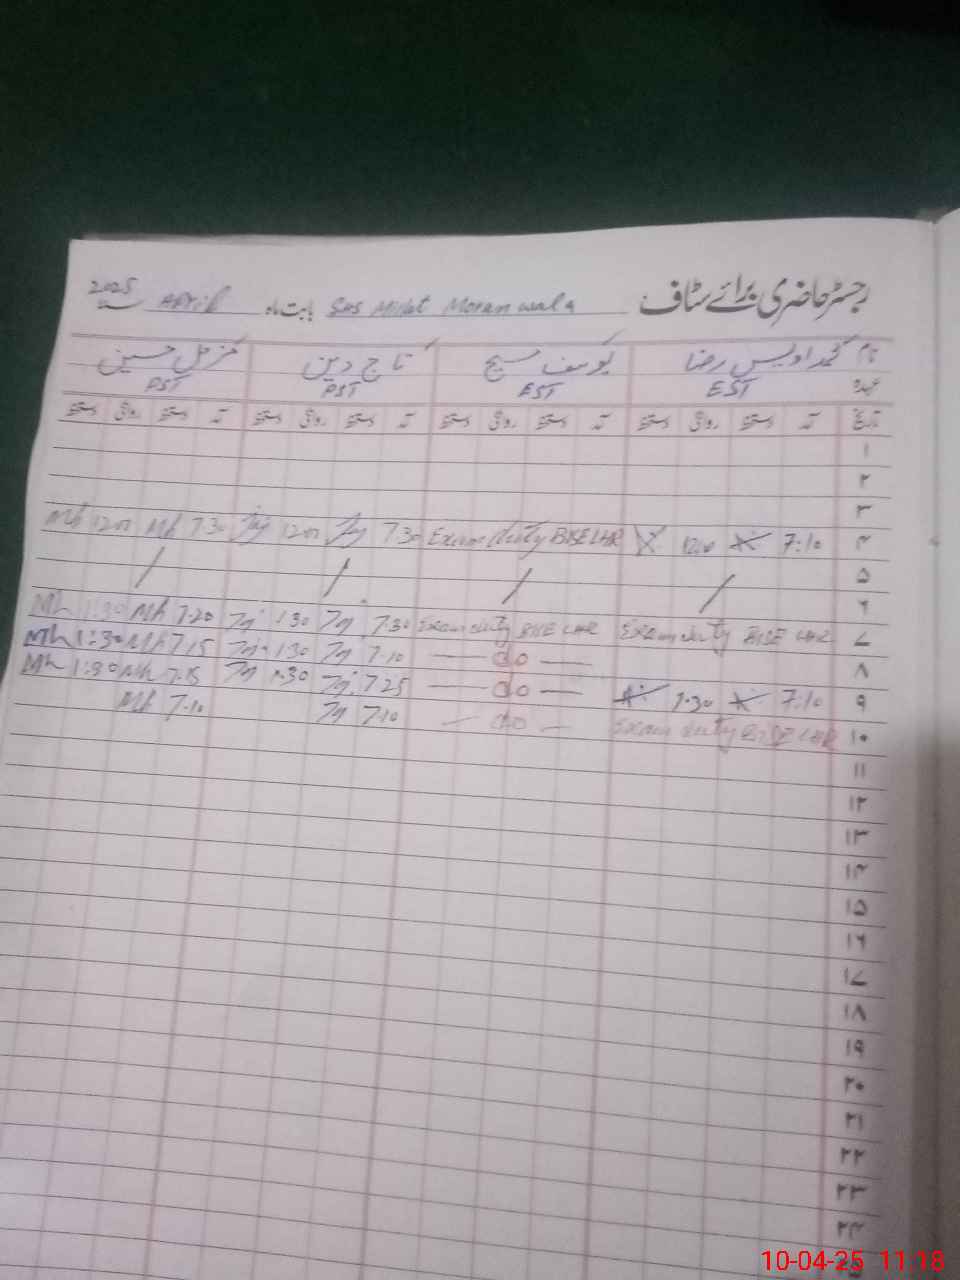 رجسٹر حاضری برائے سٹاف GHS Millat Moranwala بابت ماہ April 2025
نام محمد اویس رضا یوسف مسیح تاج دین مزمل حسین
عہدہ EST EST PST PST
تاریخ آمد دستخط روانگی دستخط آمد دستخط روانگی دستخط آمد دستخط روانگی دستخط آمد دستخط روانگی دستخط
۱
۲
۳
۴ 7:10 12:00 Exam duty BISE LHR 7.30 12:00 7.30 Mh 12:00 Mh
۵
۶ / / / /
۷ Exam duty BISE LHR Exam duty BISE LHR 7.30 1:30 7.20 Mh 1:30 Mh
۸ — do — 7.10 1:30 7.15 Mh 1:30 Mh
۹ 7:10 1:30 — do — 7.25 1:30 7.15 Mh 1:30 Mh
۱۰ Exam duty BISE LHR — do — 7.10 7.10 Mh
۱۱
۱۲
۱۳
۱۴
۱۵
۱۶
۱۷
۱۸
۱۹
۲۰
۲۱
۲۲
۲۳
۲۴
10-04-25 11:18